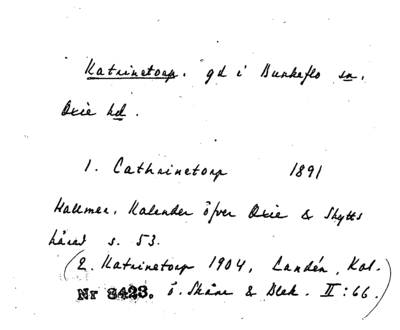 Katrinetorp. gd i Bunkeflo sn.
Oxie hd.
1. Cathrinetorp 1891
Hallmer. Kalender öfver Oxie & Skytts
härad s. 53.
(2. Katrinetorp 1904, Landén, Kal.
Nr 8423. ö. Skåne & Blek. II:66.)